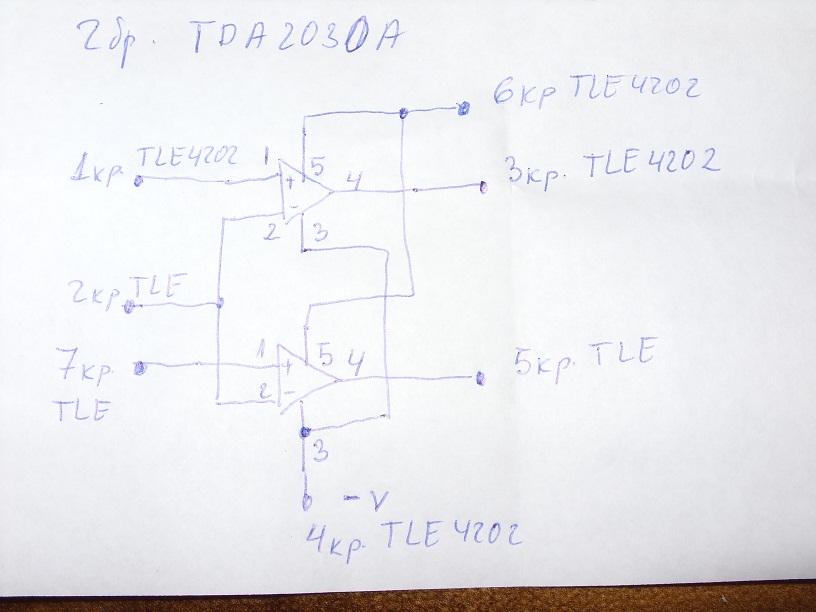 2бр. TDA2030A
6кр TLE4202
1кр. TLE4202 1 5 4 3кр. TLE4202
+
-
2 3
2кр TLE
7кр. 1 5 4 5кр. TLE
+
TLE 2 -
3
-V
4кр. TLE4202